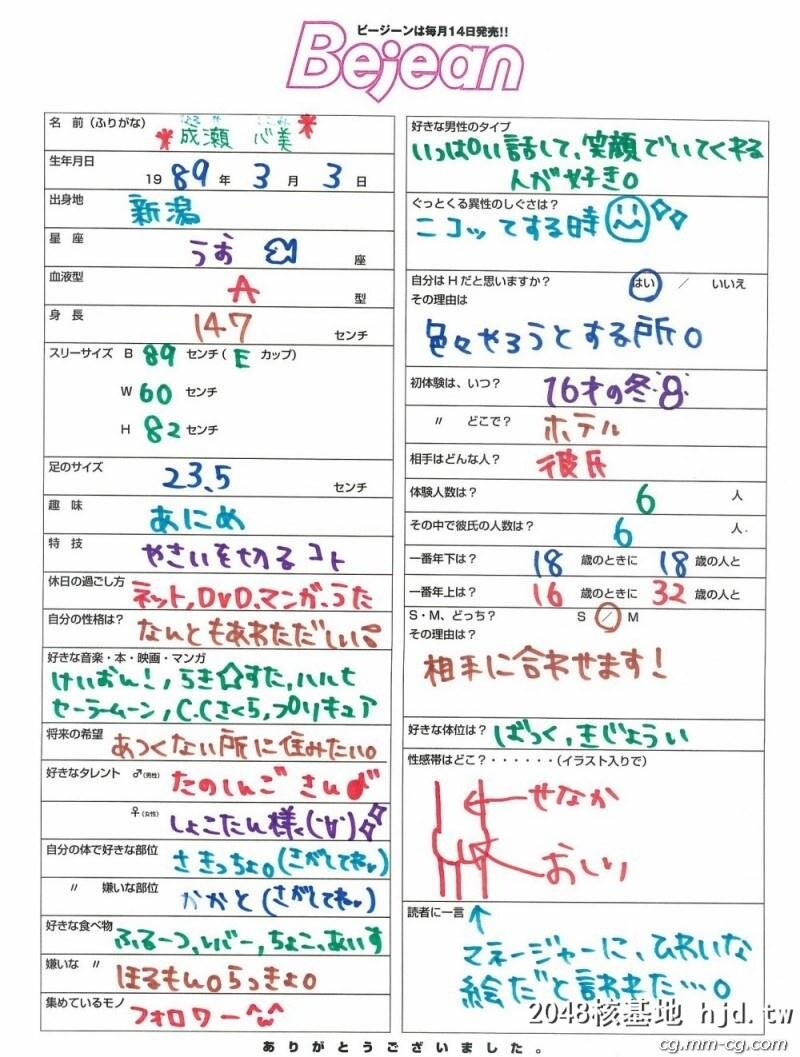 ビージーンは毎月14日発売!!
Bejean
名 前 (ふりがな)
成瀬 心美
生年月日
1989年 3月 3日
出身地
新潟
星 座
うお 座
血液型
A 型
身 長
147 センチ
スリーサイズ B 89 センチ( E カップ)
W 60 センチ
H 82 センチ
足のサイズ
23.5 センチ
趣 味
あにめ
特 技
やさいを切るコト
休日の過ごし方
ネット,DVD,マンガ,うた
自分の性格は?
なんともあわただしい
好きな音楽・本・映画・マンガ
けいおん!,らき☆すた,ハルヒ
セーラームーン,C.Cさくら,プリキュア
将来の希望
あつくない所に住みたい。
好きなタレント ♂(男性)
たのしんごさん
♀(女性)
しょこたん様
自分の体で好きな部位
さきっちょ。(さがしてねッ)
〃 嫌いな部位
かかと(さがしてねッ)
好きな食べ物
ふるーつ,レバー,ちょこ,あいす
嫌いな 〃
ほるもん。らっきょ。
集めているモノ
フォロワー^ω^
好きな男性のタイプ
いっぱい話して、笑顔でいてくれる
人が好き。
ぐっとくる異性のしぐさは?
ニコッてする時
自分はHだと思いますか? はい / いいえ
その理由は
色々やろうとする所。
S・M、どっち? S / M
その理由は?
相手に合わせます!
好きな体位は?
ばっく,きじょうい
性感帯はどこ?・・・・・・(イラスト入りで)
せなか
おしり
読者に一言
↑
マネージャーに、ひわいな
絵だと言われた…。
ありがとうございました。
2048核基地 hjd.tw
cg.mm-cg.com